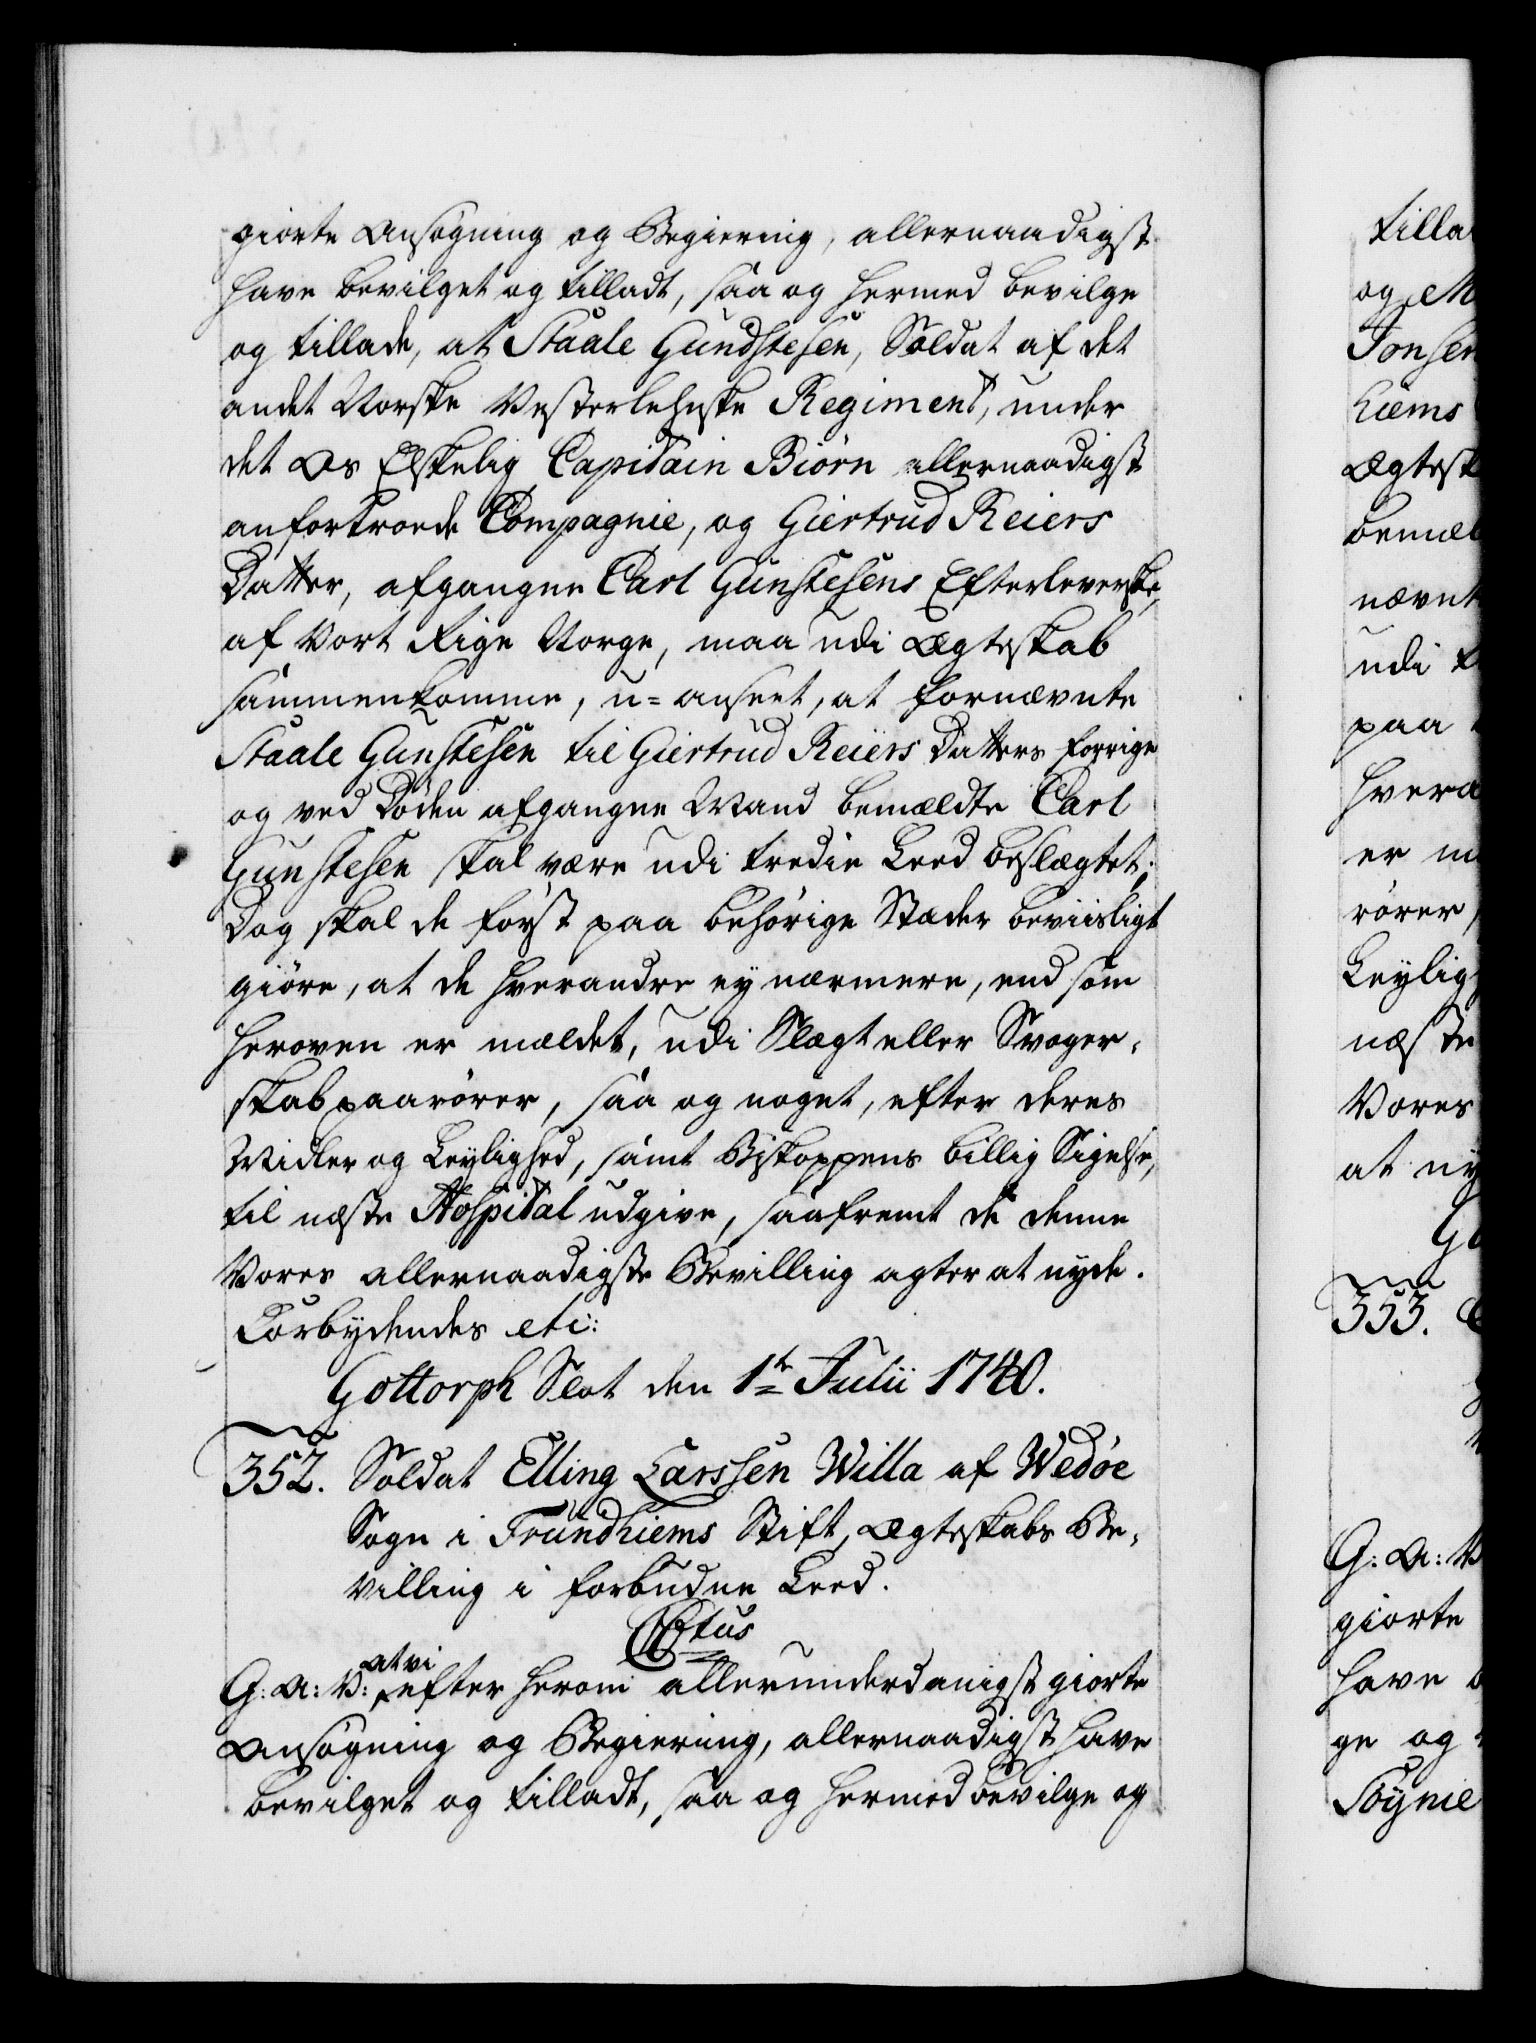 giorte Ansøgning og Begiering, allernaadigst
have bevilget og tilladt, saa og hermed bevilge
og tillade, at Staale Gundstesen, Soldat af det
andet Norske Vesterlehnske Regiment, under
det Os Elskelig Capitain Biørn allernaadigst
anfortroede Compagnie, og Giertrud Reiers
Datter, afgangne Carl Gunstesens Efterleverske,
af Vort Rige Norge, maa udi Ægteskab
sammenkomme, u=anseet, at fornævnte
Staale Gunstesen til Giertrud Reiers Datters forrige
og ved Døden afgangne Mand bemældte Carl
Gunstesen skal være udi tredie Leed beslægtet;
Dog skal de først paa behørige Stæder beviisligt
giøre, at de hverandre ey nærmere, end som
heroven er mældet, udi Slægt eller Svoger-
skab paarører, saa og noget, efter deres
Midler og Leylighed, samt Biskoppens billig Sigelse,
til næste Hospital udgive, saafremt de denne
Vores allernaadigste Bevilling agter at nyde.
Forbydendes etc:
Gottorph Slot den 1te Julii 1740.
352. Soldat Elling Larssen Willa af Wedøe
Sogn i Trundhiems Stift, Ægteskabs Be-
villing i forbudne Leed.
C6tus
at vi
G: A: V: efter herom allerunderdanigst giorte
Ansøgning og Begiering, allernaadigst have
bevilget og tilladt, saa og hermed bevilge og
tilla
og M
Jonsen
hiems
Ægtesk
bemæl
nævnt
udi
paa
hvera
er
rører,
Leylig
næste
Vores
at ny
Go
353.
G: A: V
giorte
have
ge og
Søgnie